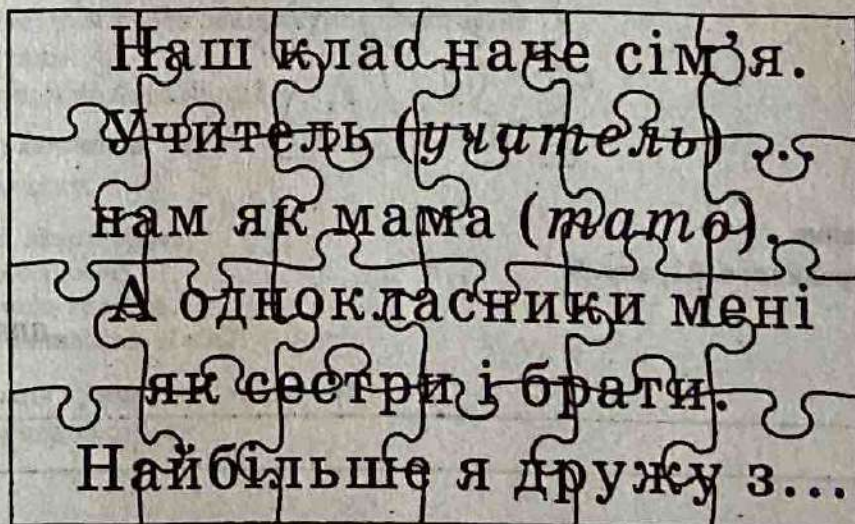 Наш клас наче сім'я.
Учитель (учитель) ...
нам як мама (тато).
А однокласники мені
як сестри і брати.
Найбільше я дружу з...